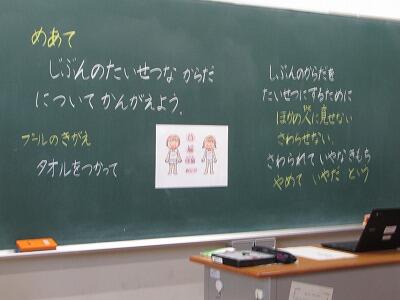 めあて
じぶんのたいせつな からだ
について かんがえよう。
プールのきがえ
タオルをつかって
じぶんのからだを
たいせつにするために
ほかの人に見せない
さわらせない。
さわられて いやなきもち
やめて いやだ という